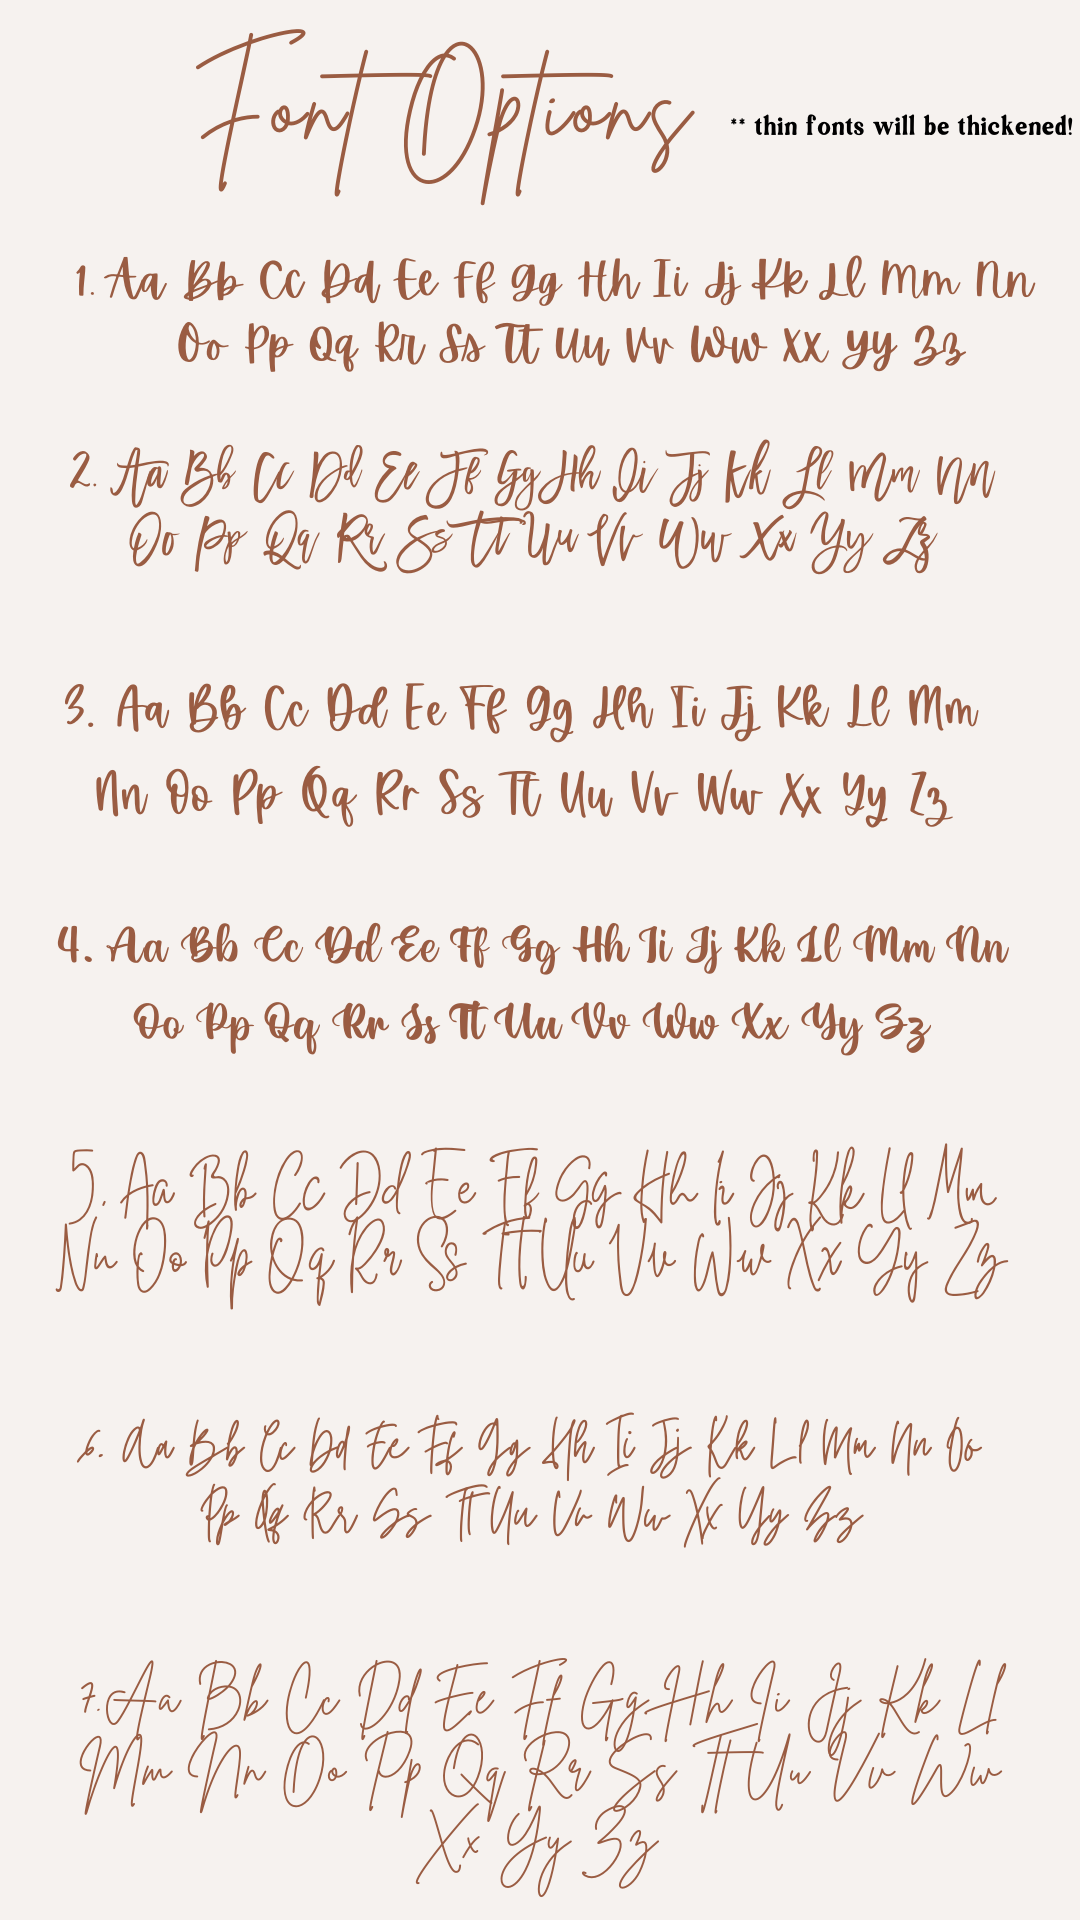 Font Options
** thin fonts will be thickened!
1. Aa Bb Cc Dd Ee Ff Gg Hh Ii Jj Kk Ll Mm Nn
Oo Pp Qq Rr Ss Tt Uu Vv Ww Xx Yy Zz
2. Aa Bb Cc Dd Ee Ff Gg Hh Ii Jj Kk Ll Mm Nn
Oo Pp Qq Rr Ss Tt Uu Vv Ww Xx Yy Zz
3. Aa Bb Cc Dd Ee Ff Gg Hh Ii Jj Kk Ll Mm
Nn Oo Pp Qq Rr Ss Tt Uu Vv Ww Xx Yy Zz
4. Aa Bb Cc Dd Ee Ff Gg Hh Ii Jj Kk Ll Mm Nn
Oo Pp Qq Rr Ss Tt Uu Vv Ww Xx Yy Zz
5. Aa Bb Cc Dd Ee Ff Gg Hh Ii Jj Kk Ll Mm
Nn Oo Pp Qq Rr Ss Tt Uu Vv Ww Xx Yy Zz
6. Aa Bb Cc Dd Ee Ff Gg Hh Ii Jj Kk Ll Mm Nn Oo
Pp Qq Rr Ss Tt Uu Vv Ww Xx Yy Zz
7. Aa Bb Cc Dd Ee Ff Gg Hh Ii Jj Kk Ll
Mm Nn Oo Pp Qq Rr Ss Tt Uu Vv Ww
Xx Yy Zz